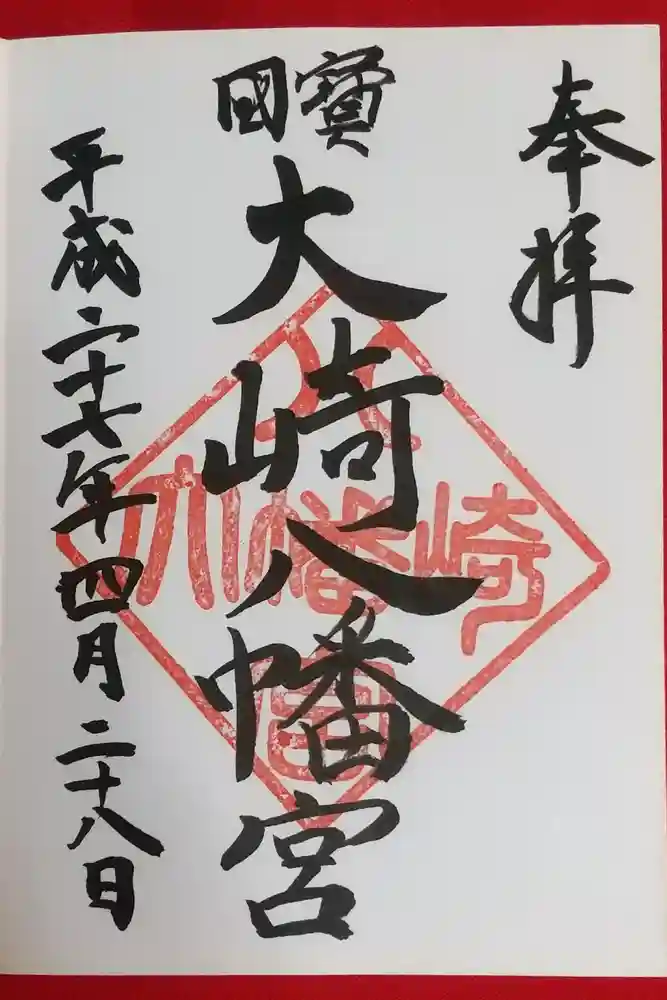 奉拝
國寶
大崎八幡宮
平成二十七年四月二十八日
大崎八幡宮